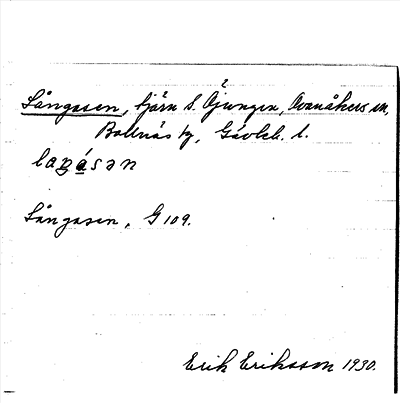 Långasen, tjärn S. Öjungen, Ovanåkers sn,
Bollnäs tg, Gävleb. l.
laŋásən
Långasen, G 109.
Erik Eriksson 1930.